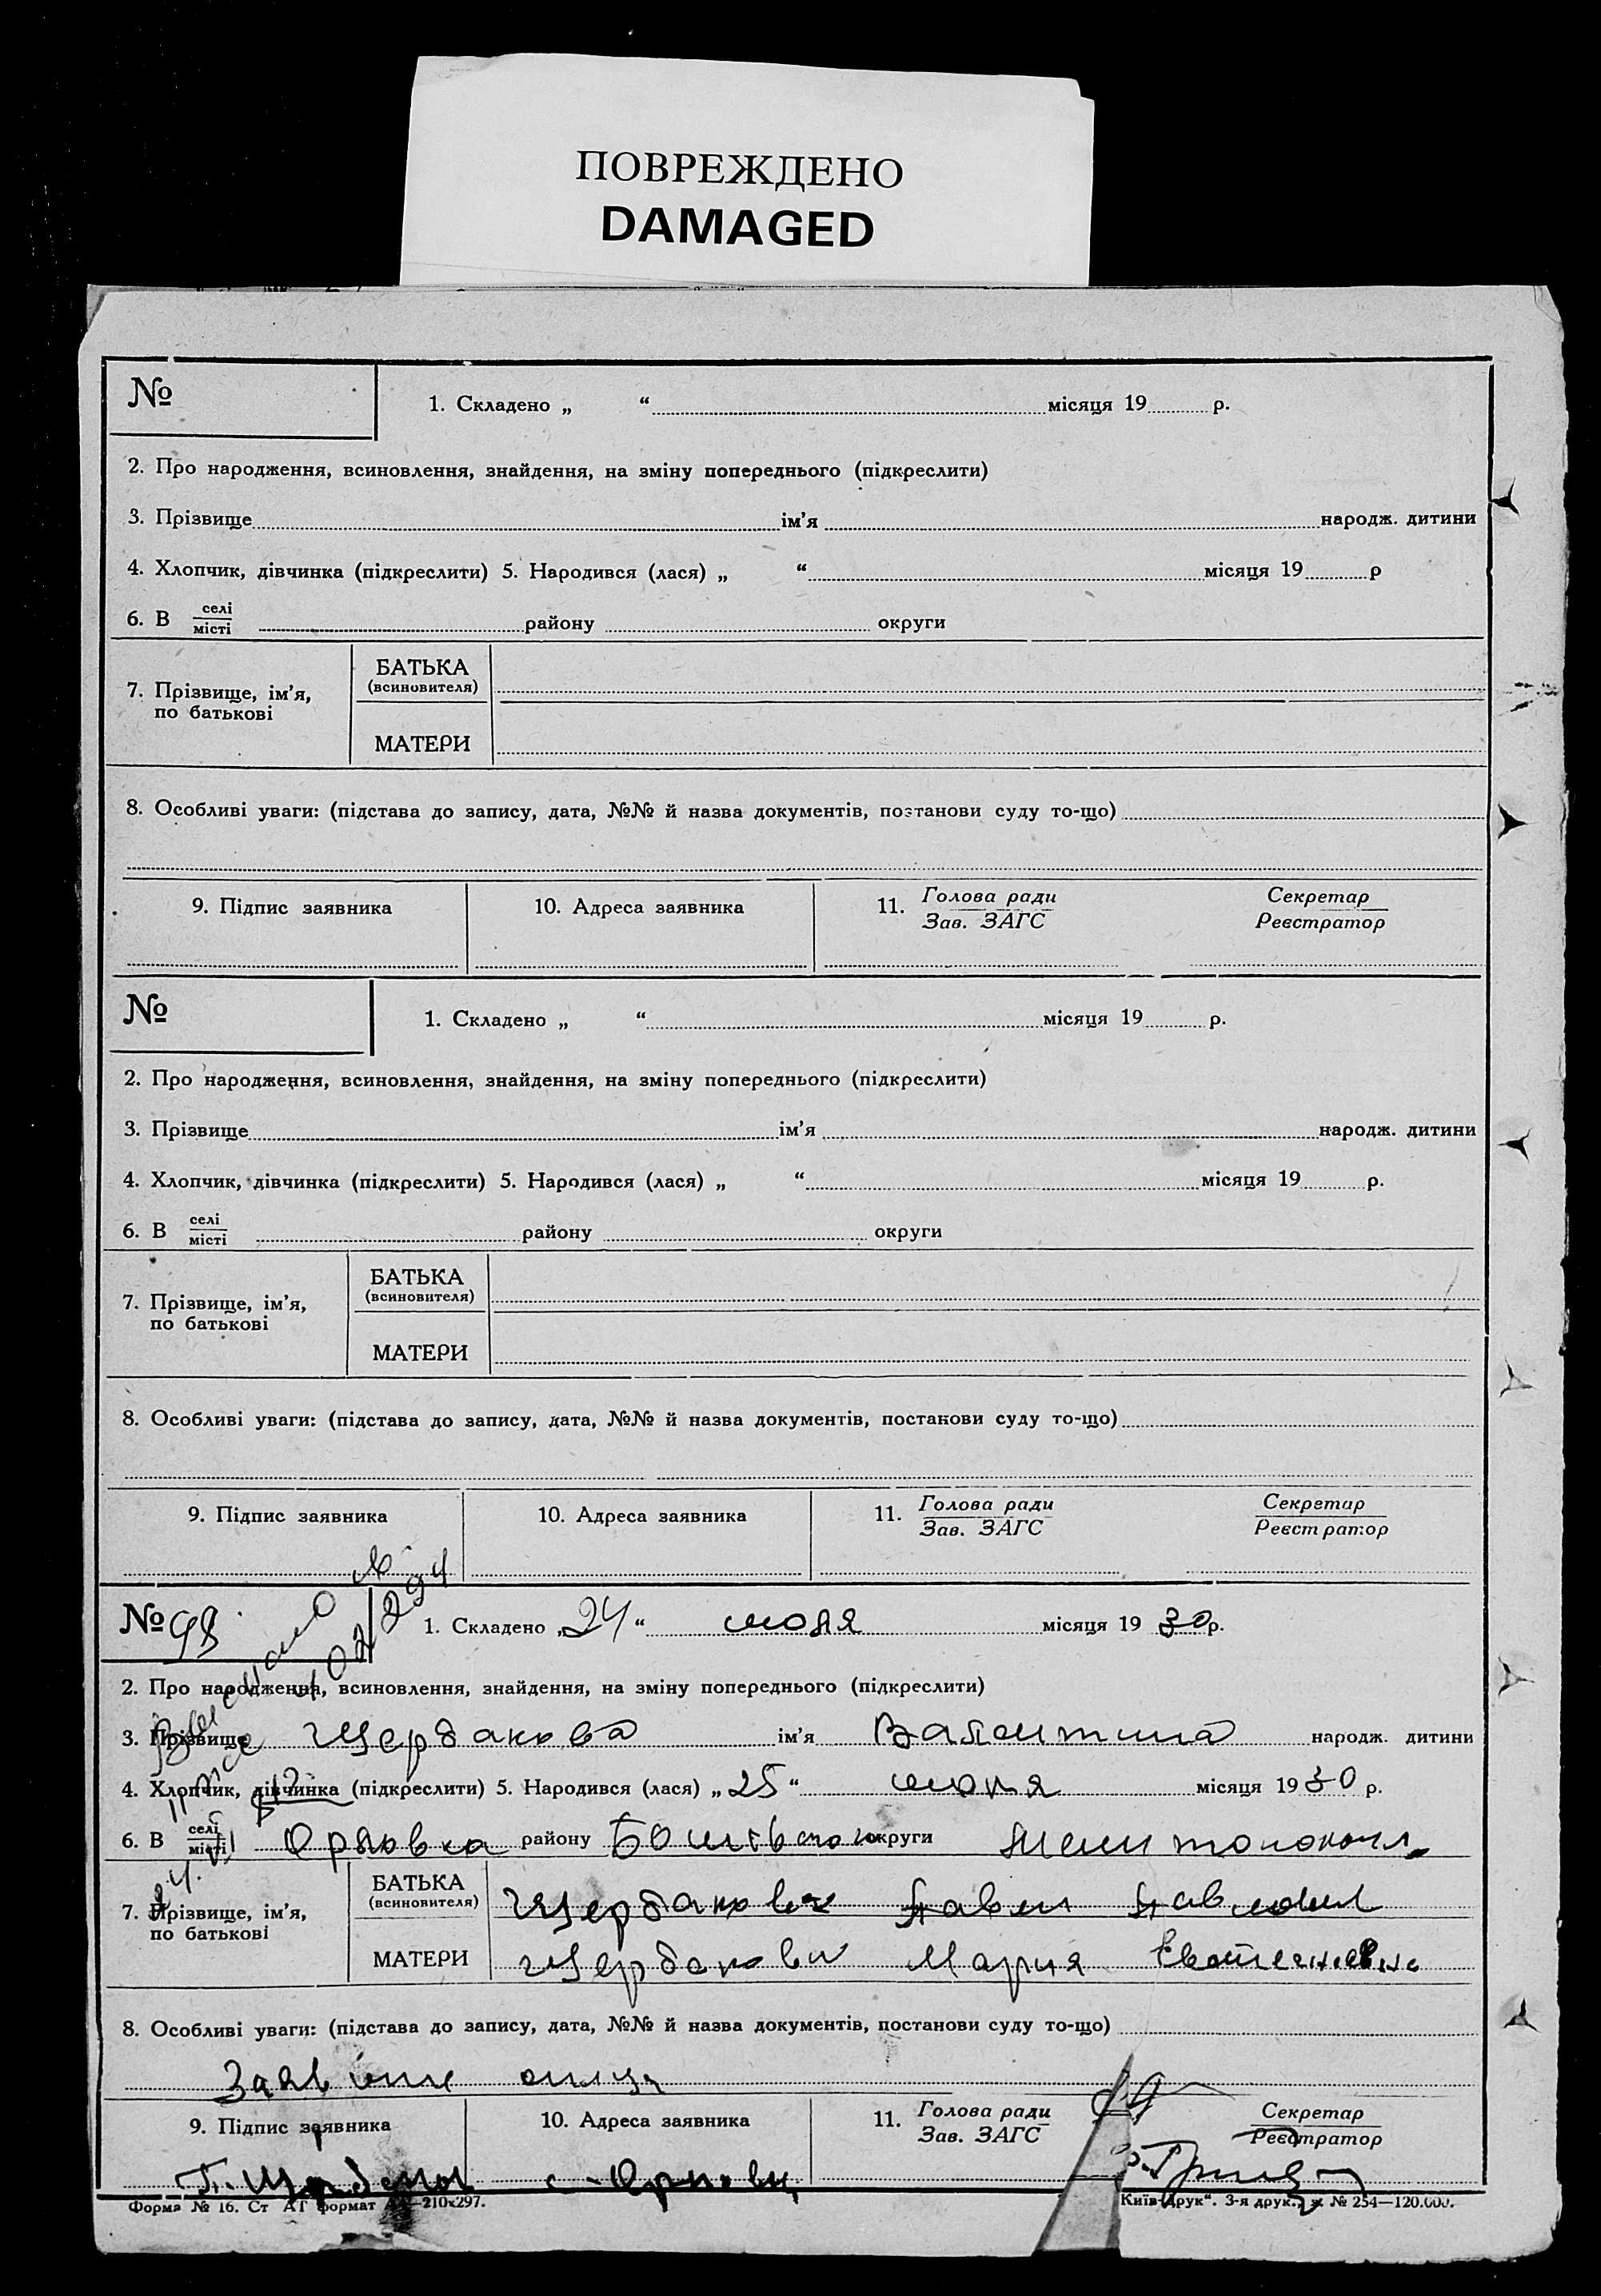 ПОВРЕЖДЕНО
DAMAGED
№
1. Складено „ “ місяця 19 р.
2. Про народження, всиновлення, знайдення, на зміну попереднього (підкреслити)
3. Прізвище ім’я народж. дитини
4. Хлопчик, дівчинка (підкреслити) 5. Народився (лася) „ “ місяця 19 р
6. В селі
місті району округи
7. Прізвище, ім’я,
по батькові
БАТЬКА
(всиновителя)
МАТЕРИ
8. Особливі уваги: (підстава до запису, дата, №№ й назва документів, постанови суду то-що)
9. Підпис заявника 10. Адреса заявника 11. Голова ради Секретар
Зав. ЗАГС Реєстратор
№
1. Складено „ “ місяця 19 р.
2. Про народження, всиновлення, знайдення, на зміну попереднього (підкреслити)
3. Прізвище ім’я народж. дитини
4. Хлопчик, дівчинка (підкреслити) 5. Народився (лася) „ “ місяця 19 р.
6. В селі
місті району округи
7. Прізвище, ім’я,
по батькові
БАТЬКА
(всиновителя)
МАТЕРИ
8. Особливі уваги: (підстава до запису, дата, №№ й назва документів, постанови суду то-що)
9. Підпис заявника 10. Адреса заявника 11. Голова ради Секретар
Зав. ЗАГС Реєстратор
№
1. Складено „24“ місяця 1930р.
2. Про народження, всиновлення, знайдення, на зміну попереднього (підкреслити)
3. Прізвище Щербакова ім’я Валентина народж. дитини
4. Хлопчик, дівчинка (підкреслити) 5. Народився (лася) „25“ місяця 1930 р.
6. В селі
місті району округи
7. Прізвище, ім’я,
по батькові
БАТЬКА
(всиновителя) Щербаков Павел
МАТЕРИ Щербакова Мария
8. Особливі уваги: (підстава до запису, дата, №№ й назва документів, постанови суду то-що)
9. Підпис заявника 10. Адреса заявника 11. Голова ради Секретар
Зав. ЗАГС Реєстратор
Форма № 16. Ст АТ формат 210х297. Київ-Друк“. 3-я друк. № 254—120.000.